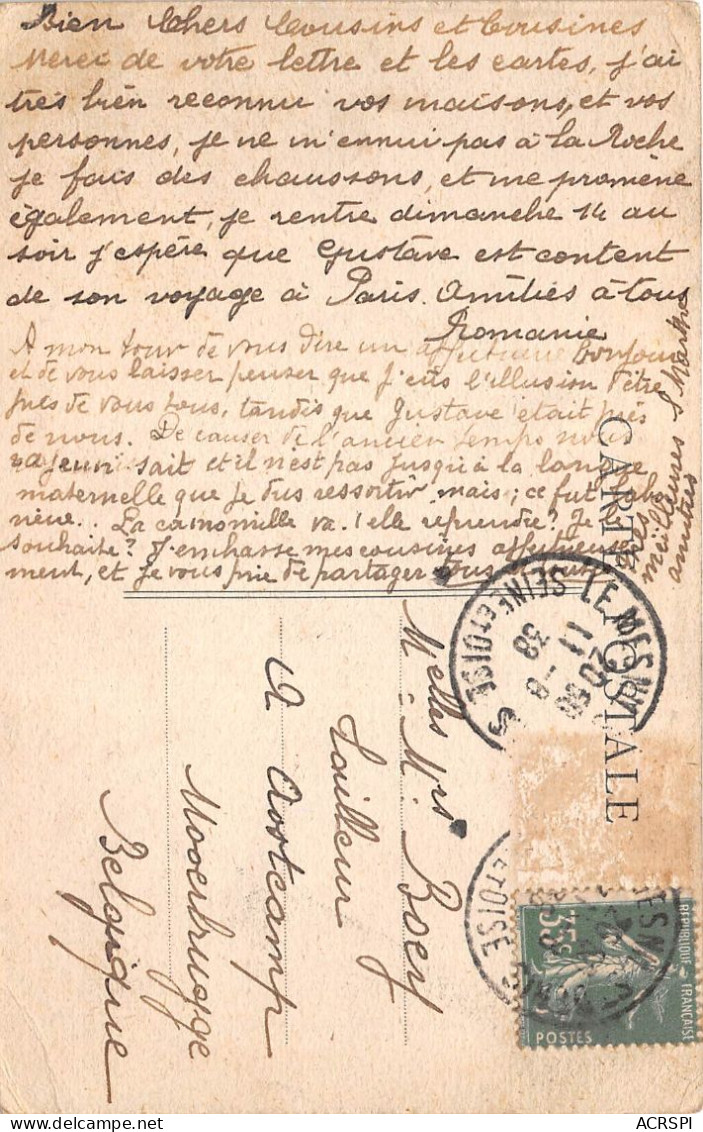 Bien Chers Cousins et Cousines
Merci de votre lettre et les cartes, j'ai
très bien reconnu vos maisons, et vos
personnes, je ne m'ennui pas à la Roche
je fais des chaussons, et me promène
également, je rentre dimanche 14 au
soir j'espère que Gustave est content
de son voyage à Paris. Amitiés à tous
Romanie
A mon tour de vous dire un affectueux bonjour
et de vous laisser penser que j'eus l'illusion d'être
près de vous tous, tandis que Gustave était près
de nous. De causer de l'ancien temps nous
rajeunissait et il n'est pas jusqu'à la langue
maternelle que je dus ressortir mais; ce fut
La camomille va-t'elle reprendre? Je
souhaite? J'embrasse mes cousines affectueuse
ment, et je vous prie de partager tous
meilleures
amitiés
CARTE POSTALE
LE MESNIL
SEINE ET OISE
20
11 -8
38
Melles Mrs Boey
Tailleur
A Oostcamp
Moerbrugge
Belgique
RÉPUBLIQUE FRANÇAISE
POSTES
ACRSPI